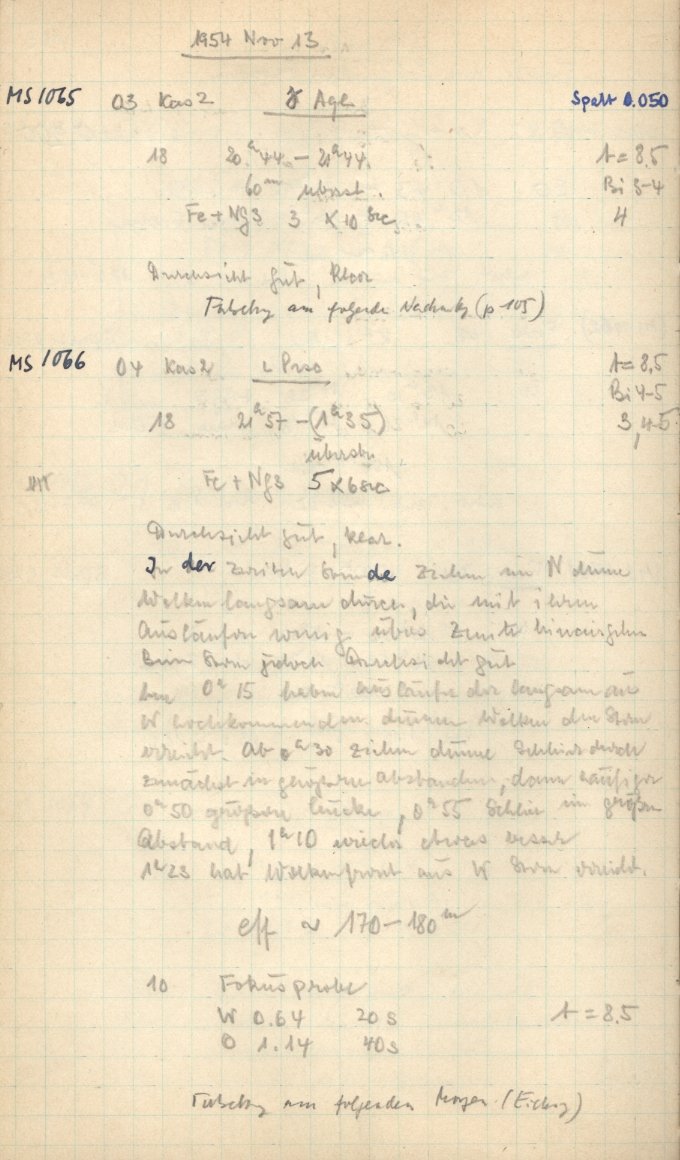 1954 Nov 13
MS 1065 03 Kas 2 γ Aql Spalt 0.050
18 20h 44 – 21h 44 t = 8,5
60m überst. Bi 3-4
Fe + Ng 3 3 x 10 sec 4
Durchsicht gut, klar
am folgenden (p 105)
MS 1066 04 Kas 2 ι Pers t = 8,5
Bi 4-5
18 21h 57 – (1h 35) 3, 4-5
überst.
Fe + Ng 3 5 x 6 sec
Durchsicht gut, klar.
In der zweiten Stunde ziehen im N dünne
Wolken langsam durch, die mit ihren
Ausläufern wenig übers Zenith hinausgehen
Beim Stern jedoch Durchsicht gut
Um 0h 15 haben Ausläufer der langsam aus
W hochkommenden dünnen Wolken den Stern
erreicht. Ab 0h 30 ziehen dünne Schlieren durch
zunächst in größeren Abständen, dann häufiger
0h 50 größere Lücke, 0h 55 Schlier im großen
Abstand, 1h 10 wieder etwas besser
1h 23 hat Wolkenfront aus W Stern erreicht.
eff ~ 170 – 180m
10 Fokusprobe
W 0.64 20 s t = 8.5
O 1.14 40 s
am folgenden Morgen